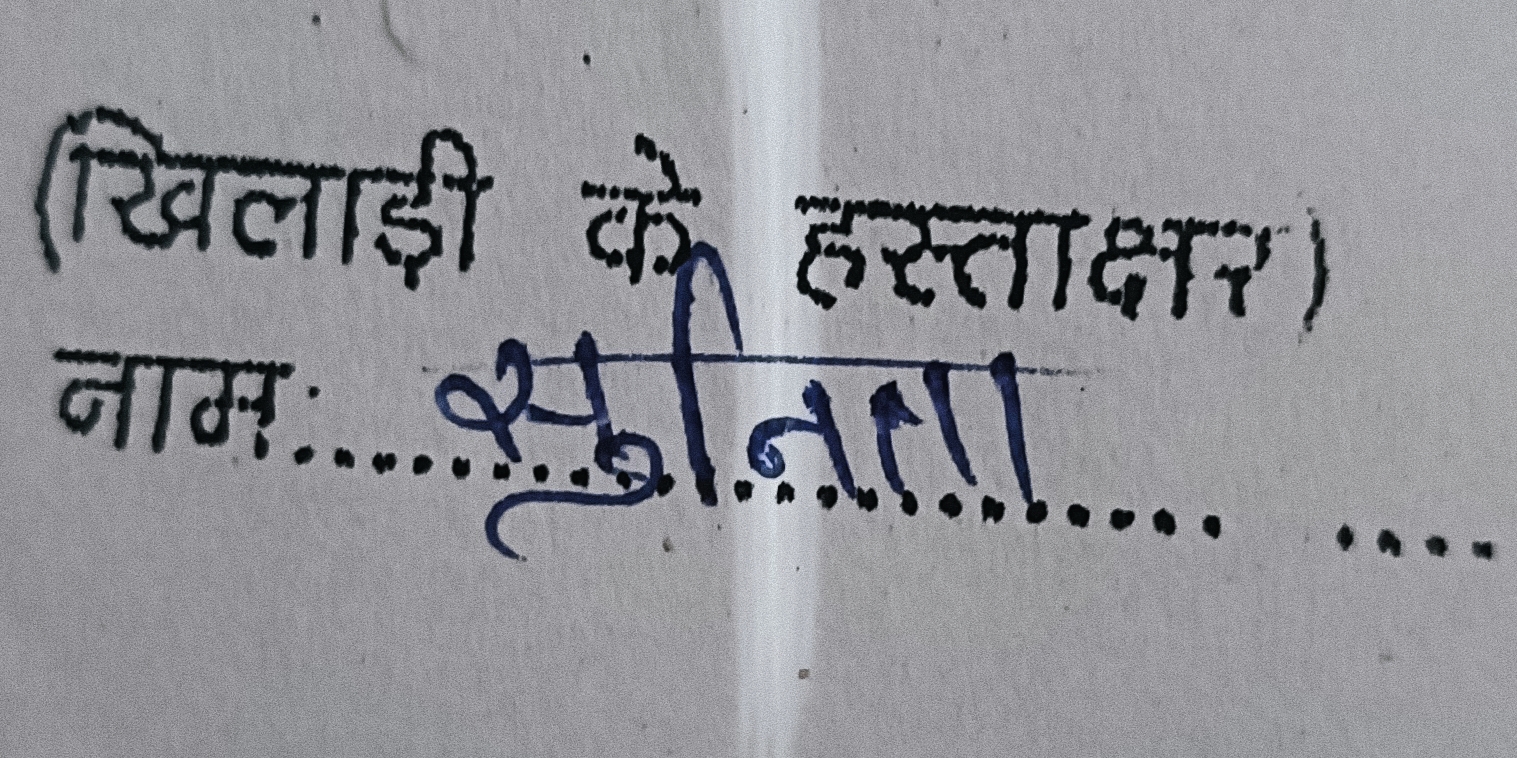 (खिलाड़ी के हस्ताक्षर)
नाम:..........सुनिता..........